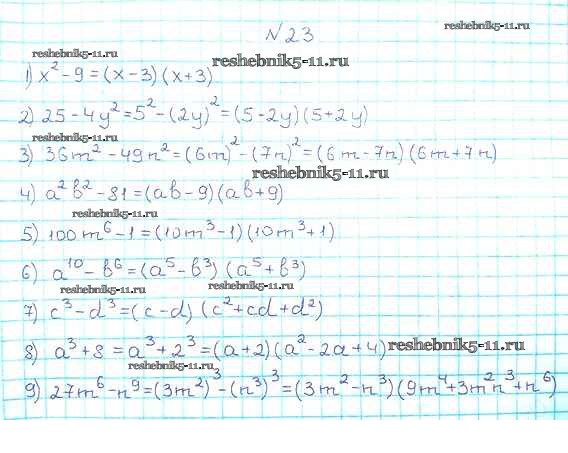 N 23
reshebnik5-11.ru
reshebnik5-11.ru
reshebnik5-11.ru
1) x² - 9 = (x - 3) (x + 3)
2) 25 - 4y² = 5² - (2y)² = (5 - 2y) (5 + 2y)
reshebnik5-11.ru
3) 36m² - 49n² = (6m)² - (7n)² = (6m - 7n) (6m + 7n)
reshebnik5-11.ru
4) a²b² - 81 = (ab - 9) (ab + 9)
reshebnik5-11.ru
5) 100m⁶ - 1 = (10m³ - 1) (10m³ + 1)
6) a¹⁰ - b⁶ = (a⁵ - b³) (a⁵ + b³)
reshebnik5-11.ru
reshebnik5-11.ru
7) c³ - d³ = (c - d) (c² + cd + d²)
8) a³ + 8 = a³ + 2³ = (a + 2) (a² - 2a + 4)
reshebnik5-11.ru
reshebnik5-11.ru
9) 27m⁶ - n⁹ = (3m²)³ - (n³)³ = (3m² - n³) (9m⁴ + 3m²n³ + n⁶)